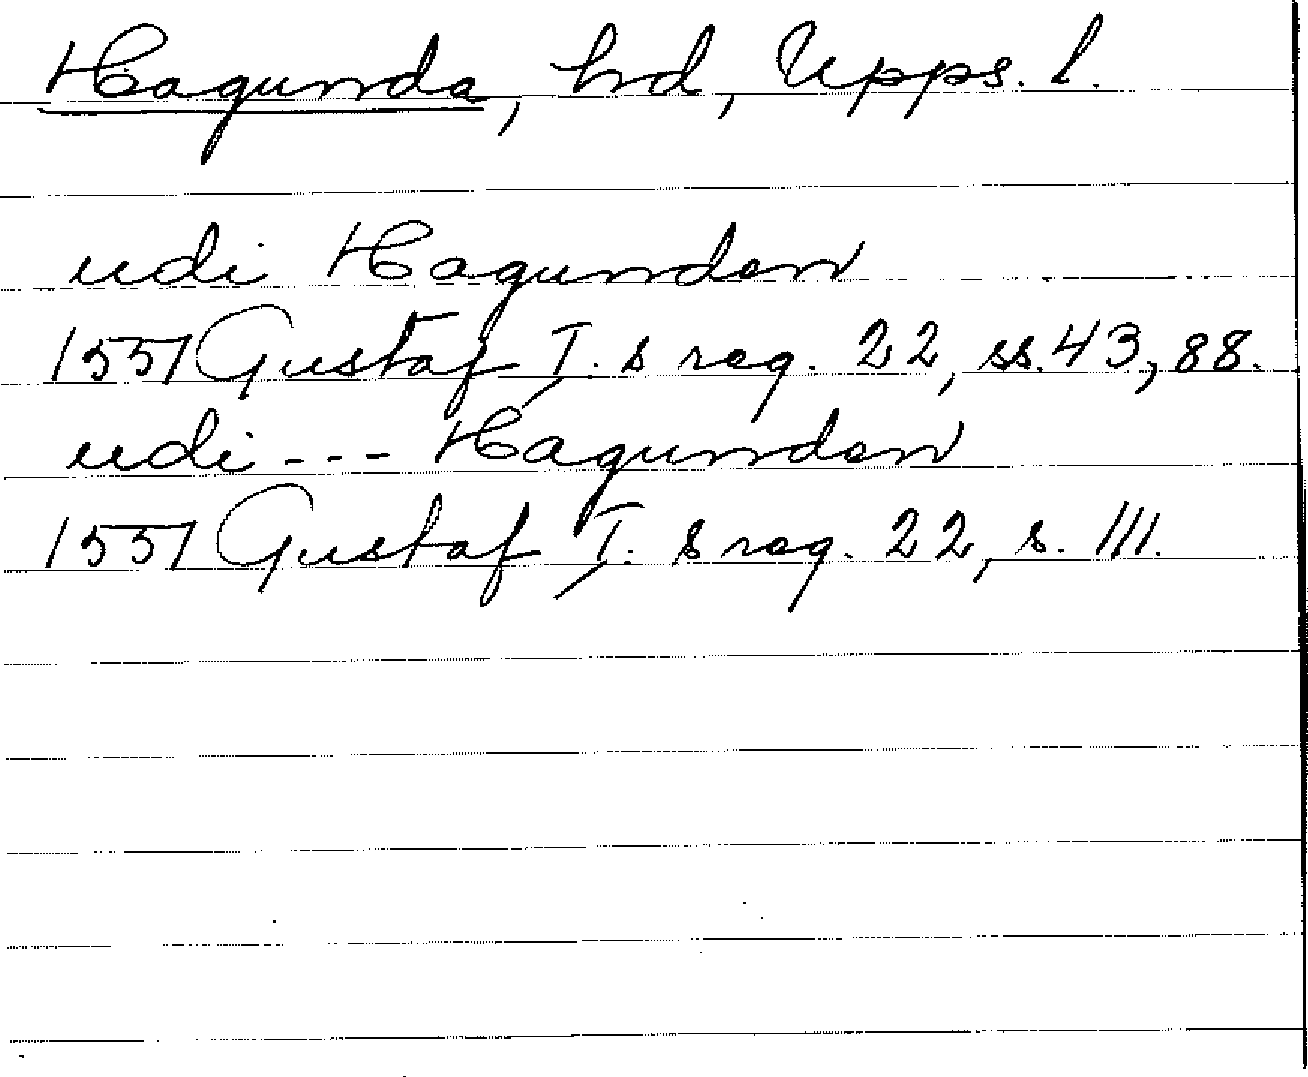 Hagunda, hd, Upps. l.
udi Hagundan
1551 Gustaf I. s reg. 22, ss. 43, 88.
udi --- Hagundan
1551 Gustaf I. s reg. 22, s. 111.